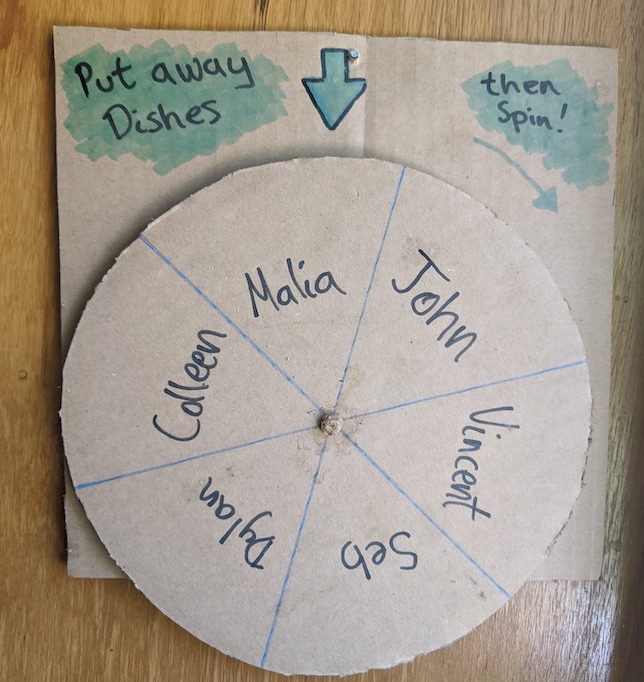 Put away
Dishes
then
Spin!
Malia
John
Vincent
Seb
Dylan
Colleen